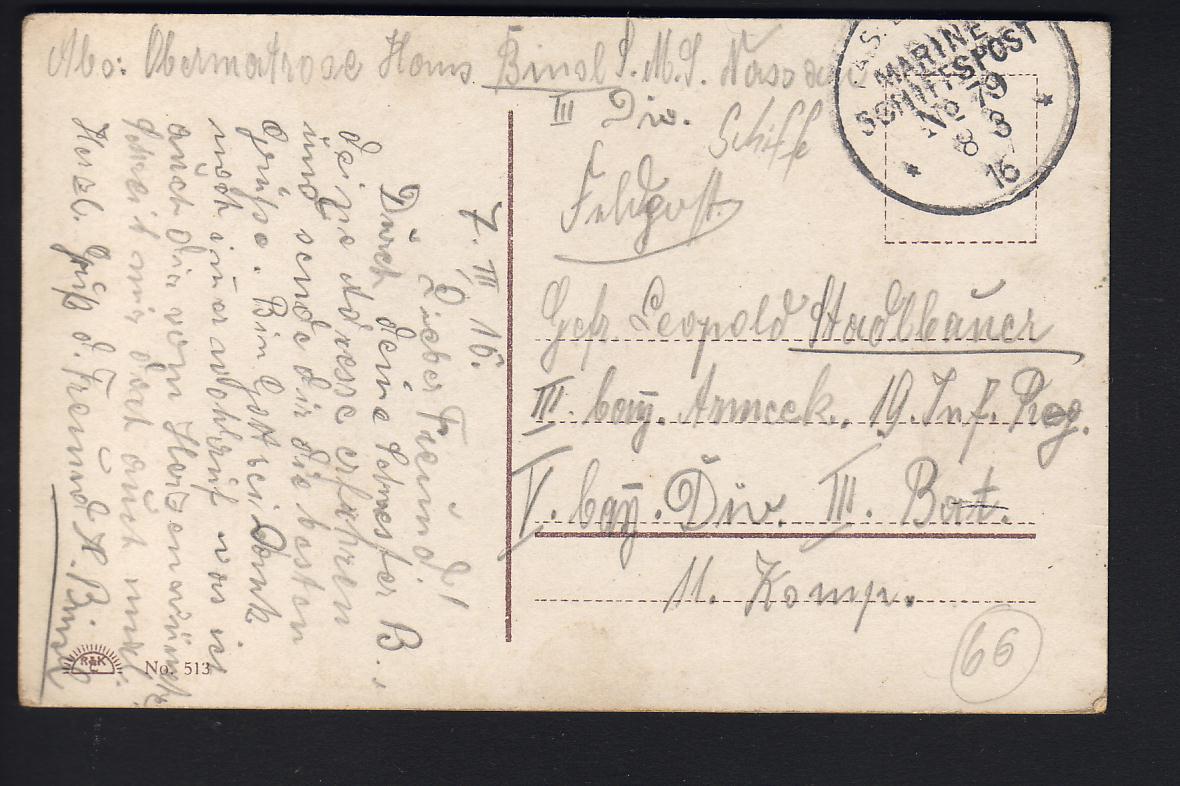 Abs: Obermatrose Hans Binsl S.M.S. Nassau
III Div. Schiffe
KAIS.
MARINE
SCHIFFSPOST
No 79
8 3
16
Feldpost
Gefr Leopold Stadlbauer
III. bay. Armeek. 19. Inf. Reg.
V. bay. Div. III. Bat.
11. Komp.
66
7. III 16.
Lieber Freund!
Durch deine Schwester B.
deine Adresse erfahren
und sende dir die besten
Grüße. Bin Gott sei Dank
noch immer wohlauf was ich
auch dir vom Herzen wünsche
auch mal.
Herzl. Gruß d. Freund H. Binsl
R&K
L
No. 513